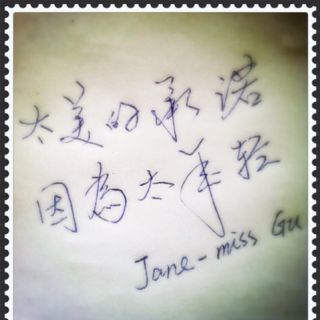 太美的承诺
因为太年轻
Jane-miss Gu